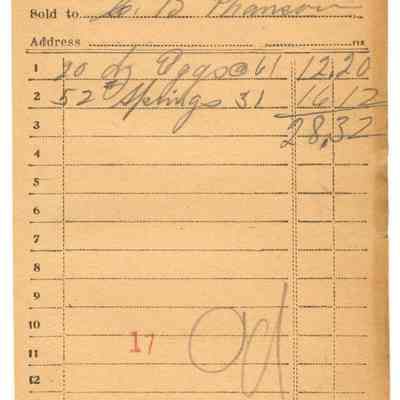 Sold to
Address
1 20 dz Eggs @ 61 12.20
2 52# Springs 31 16 12
3 28,32
4
5
6
7
8
9
10
11 17
12